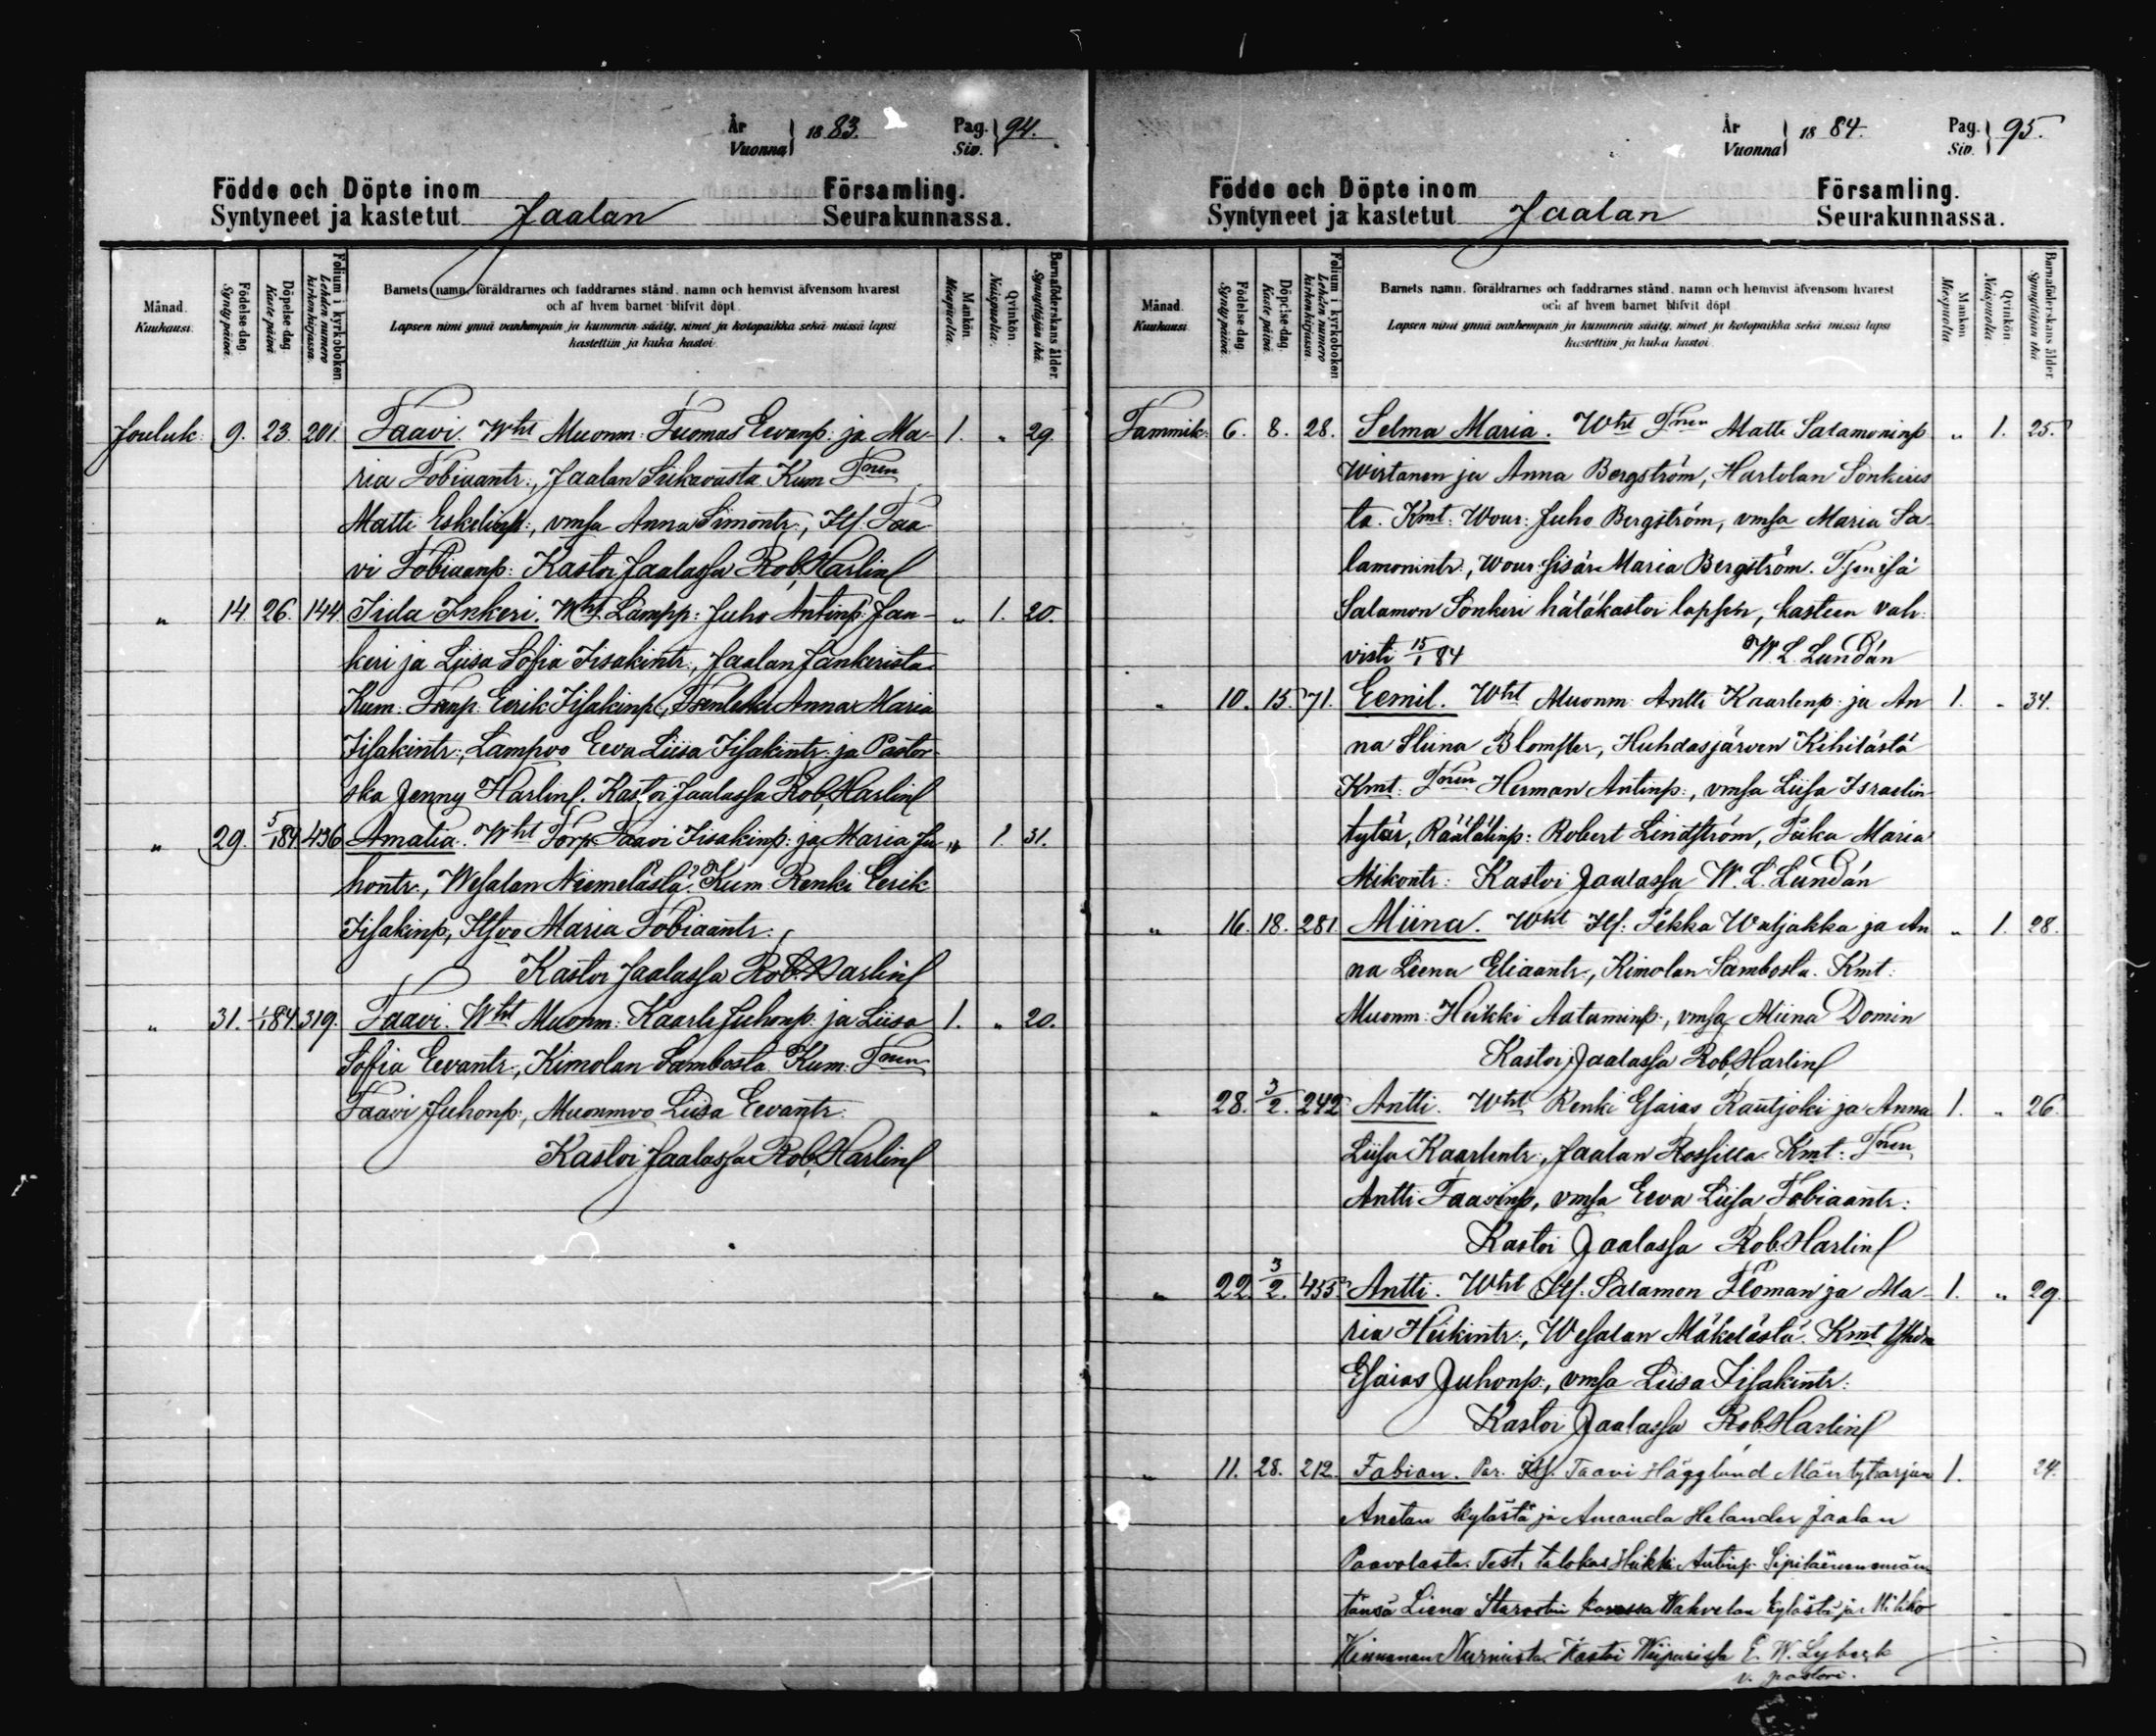 År Vuonna 1883. Pag. Siv. 94.
Födde och Döpte inom Församling.
Syntyneet ja kastetut Jaalan Seurakunnassa.
Månad. Kuukausi. Födelse dag. Synty päivä. Döpelse dag. Kaste päivä Folium i kyrkoboken. Lehden numero kirkonkirjassa. Barnets namn, föräldrarnes och faddrarnes stånd, namn och hemvist äfvensom hvarest och af hvem barnet blifvit döpt. Mankön. Miespuolia. Qvinkön. Naispuolia. Barnaföderskans ålder. Synnyttäjän ikä.
Lapsen nimi ynnä vanhempain ja kummein sääty, nimet ja kotopaikka sekä missä lapsi
kastettiin ja kuka kastoi.
Jouluk: 9. 23. 201. Taavi. Wht Muonm: Tuomas Eevanp: ja Ma- 1. " 29.
ria Tobiaantr:, Jaalan Siikavasta. Kum Tnen
Matti Eskelinp:, vmsa Anna Simontr:, Itf. Taa
vi Tobiaanp: Kastoi Jaalassa Rob. Harlin
" 14. 26. 144. Iida Inkeri. Wht Lampp: Juho Antinp: Jan- " 1. 20.
keri ja Liisa Sofia Iisakintr:, Jaalan Jankerista
Kum: Tnp: Eerik Iisakinp:, Anna Maria
Iisakintr:, Lampvo Eeva Liisa Iisakintr: ja Pastor-
ska Jenny Harlin. Kastoi Jaalassa Rob. Harlin
" 29. 5/1 84. 436 Amalia. Wht Torp: Taavi Iisakinp: ja Maria Ju " 1. 31.
hontr:, Wesalan Niemelästä. Kum: Renki Eerik
Iisakinp:, Itsvo Maria Tobiaantr:
Kastoi Jaalassa Rob. Harlin
" 31. 1/1 84. 319. Taavi. Wht Muonm: Kaarle Juhonp: ja Liisa 1. " 20.
Sofia Eevantr:, Kimolan Sambosta. Kum: Tnen
Taavi Juhonp:, Muonmvo Liisa Eevantr:
Kastoi Jaalassa Rob. Harlin
År Vuonna 1884. Pag. Siv. 95.
Födde och Döpte inom Församling.
Syntyneet ja kastetut Jaalan Seurakunnassa.
Månad. Kuukausi. Födelse dag. Synty päivä. Döpelse dag. Kaste päivä. Folium i kyrkoboken Lehden numero kirkonkirjassa. Barnets namn, föräldrarnes och faddrarnes stånd, namn och hemvist äfvensom hvarest och af hvem barnet blifvit döpt. Mankön. Miespuolia. Qvinkön. Naispuolia. Barnaföderskans ålder. Synnyttäjän ikä.
Lapsen nimi ynnä vanhempain ja kummein sääty, nimet ja kotopaikka sekä missä lapsi
kastettiin ja kuka kastoi.
Tammik: 6. 8. 28. Selma Maria. Wht Tnen Matti Salamoninp " 1. 25.
Wirtanen ja Anna Bergström, Hartolan Sonkeris
ta. Kmt: Wour: Juho Bergström, vmsa Maria Sa
lamonintr:, Wour: sisär: Maria Bergström. Tjen isä
Salamon Sonkeri hätäkastoi lapsen, kasteen vah-
visti 15/1 84 W. L. Lundán
" 10. 15. 71. Eemil. Wht Muonm: Antti Kaarlenp: ja An 1. " 34.
na Stiina Blomster, Huhdasjärven Kihilästä
Kmt: Tnen Herman Antinp:, vmsa Liisa Israelin
tytär, Räätälinp: Robert Lindström, Piika Maria
Mikontr: Kastoi Jaalassa W. L. Lundán
" 16. 18. 281. Miina. Wht Itf: Pekka Waljakka ja An " 1. 28.
na Leena Eliaantr:, Kimolan Sambosta. Kmt:
Muonm: Heikki Aataminp:, vmsa Miina Domin
Kastoi Jaalassa Rob. Harlin
" 28. 3/2. 242 Antti. Wht Renki Esaias Rautjoki ja Anna 1. " 26.
Liisa Kaarlentr:, Jaalan Rossilla. Kmt: Tnen
Antti Taavinp:, vmsa Eeva Liisa Tobiaantr:
Kastoi Jaalassa Rob. Harlin
" 22. 3/2. 455 Antti. Wht Itf: Salamon Floman ja Ma- 1. " 29.
ria Heikintr:, Wesalan Mäkelästä. Kmt
Esaias Juhonp:, vmsa Liisa Iisakintr:
Kastoi Jaalassa Rob. Harlin
" 11. 28. 212. Fabian. Par. Itf. Taavi Hägglund Mäntyharjun 1. 24.
Anetan kylästä ja Amanda Helander Jaalan
Paavolasta. Test. talokas Heikki Antinp.
Liena Wahvelan kylästä ja Mikko
Nurmista. Kastoi Wiipurissa E. W. Lybeck
v. pastori.